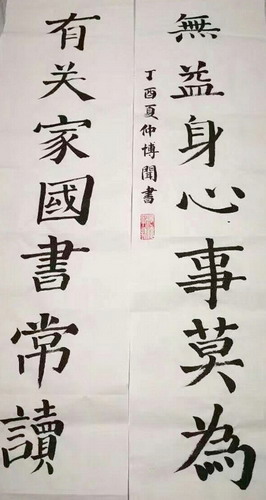 無益身心事莫為
有关家國書常讀
丁酉夏仲博聞書